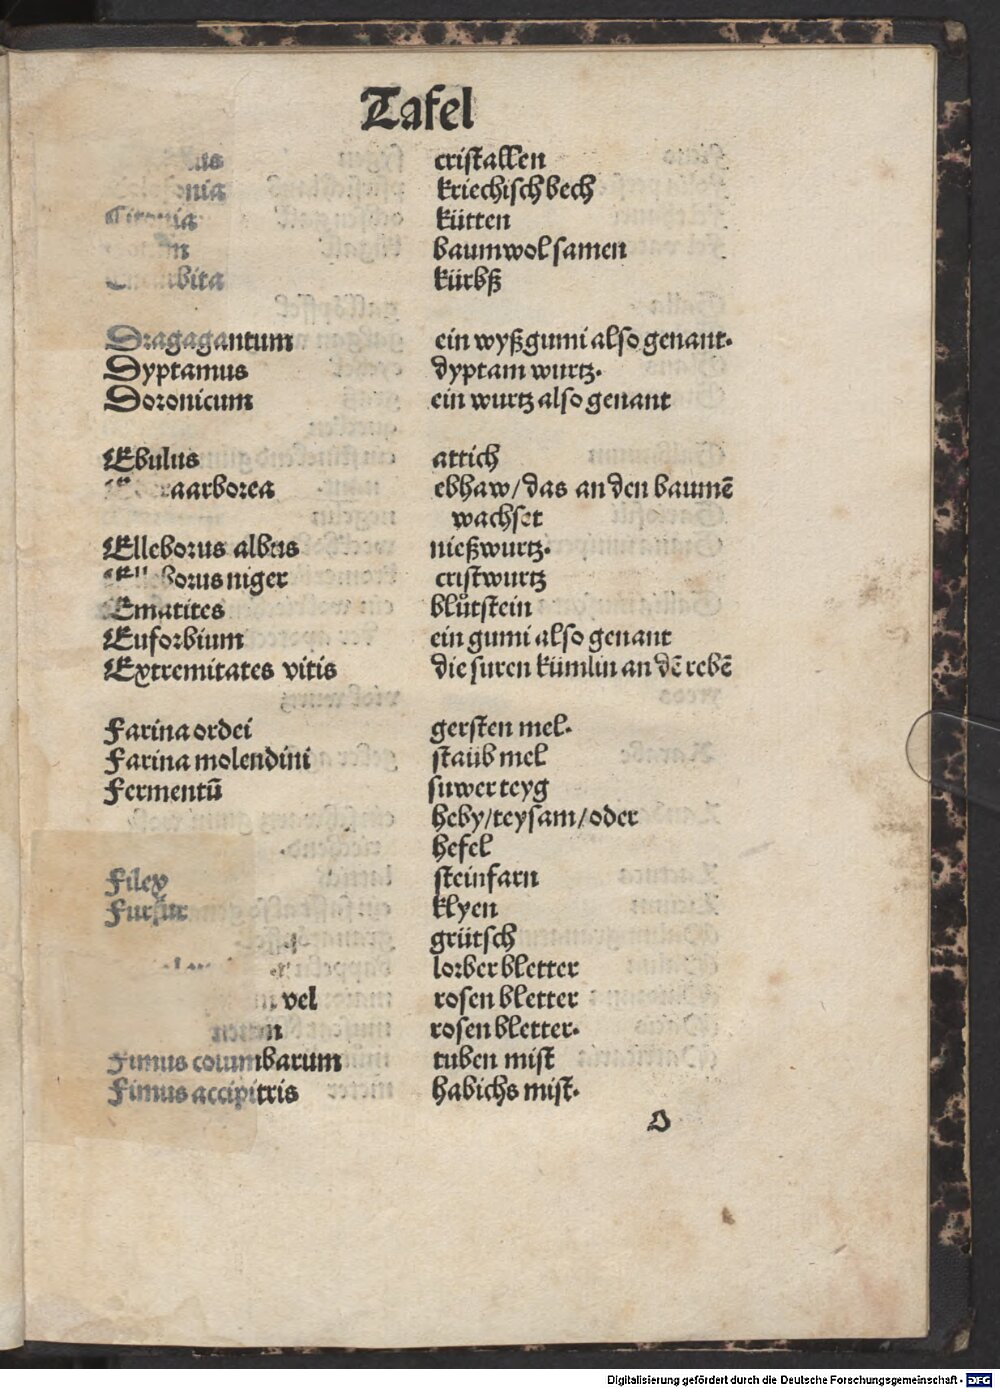 Tafel
cristallen
kriechisch bech
kütten
baumwol samen
kürbß
Dragagantum ein wyßgumi also genant.
Dyptamus dyptam wurtz.
Doronicum ein wurtz also genant
Ebulus attich
aarborea ebhaw/das an den baumē
wachset
Elleborus albus nießwurtz.
Elleborus niger cristwurtz
Ematites blůtstein
Euforbium ein gumi also genant
Extremitates vitis die suren kümlin an dē rebē
Farina ordei gersten mel.
Farina molendini staub mel
Fermentū suwer teyg
heby/teysam/oder
hefel
Filex steinfarn
Furfur klyen
grütsch
lorber bletter
vel rosen bletter
rosen bletter.
Fimus columbarum tuben mist
Fimus accipitris habichs mist.
D
Digitalisierung gefördert durch die Deutsche Forschungsgemeinschaft - DFG